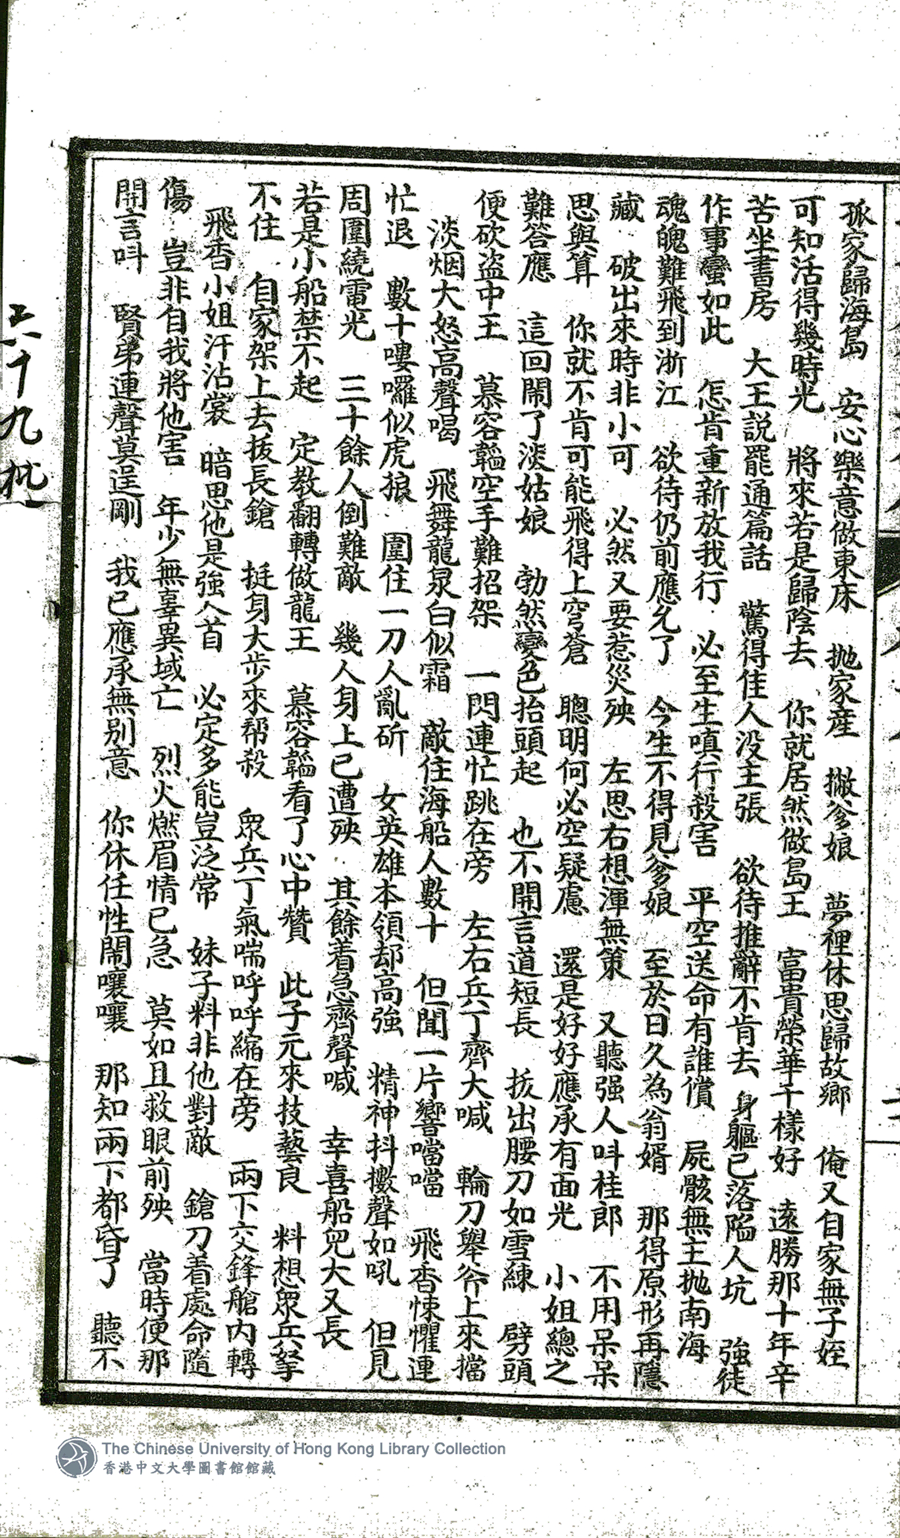 孤家歸海島　安心樂意做東床　拋家産　撇爹娘　夢裡休思歸故鄉　俺又自家無子姪
可知活得幾時光　將來若是歸陰去　你就居然做島王　富貴榮華千樣好　遠勝那十年辛
苦坐書房　大王説罷通篇話　驚得佳人没主張　欲待推辭不肯去　身軀已落陥人坑　強徒
作事蠻如此　怎肯重新放我行　必至生嗔行殺害　平空送命有誰償　屍骸無主拋南海
魂魄難飛到浙江　欲待仍前應允了　今生不得見爹娘　至於日久為翁婿　那得原形再隱
藏　破出來時非小可　必然又要惹災殃　左思右想渾無策　又聽强人呌桂郎　不用呆呆
思與算　你就不肯可能飛得上穹蒼　聰明何必空疑慮　還是好好應承有面光　小姐總之
難答應　這回鬧了淡姑娘　勃然變色抬頭起　也不開言道短長　拔出腰刀如雪練　劈頭
便砍盗中王　慕容韞空手難招架　一閃連忙跳在旁　左右兵丁齊大喊　輪刀舉斧上來擋
淡烟大怒高聲喝　飛舞龍泉白似霜　敵住海船人數十　但聞一片響噹噹　飛香悚懼連
忙退　數十嘍囉似虎狼　圍住一刀人亂斫　女英雄本領却高強　精神抖擻聲如吼　但見
周圍繞雷光　三十餘人倒難敵　幾人身上已遭殃　其餘着急齊聲喊　幸喜船兒大又長
若是小船禁不起　定教翻轉做龍王　慕容韞看了心中贊　此子元來技藝良　料想衆兵拏
不住　自家架上去拔長鎗　挺身大步來帮殺　衆兵丁氣喘呼呼縮在旁　兩下交鋒艙内轉
飛香小姐汗沾裳　暗思他是強人首　必定多能豈泛常　妹子料非他對敵　鎗刀着處命隨
傷　豈非自我將他害　年少無辜異域亡　烈火燃眉情已急　莫如且救眼前殃　當時便那
開言呌　賢弟連聲莫逞剛　我已應承無别意　你休任性鬧嚷嚷　那知兩下都昏了　聽不
六十九
The Chinese University of Hong Kong Library Collection
香港中文大學圖書館館藏